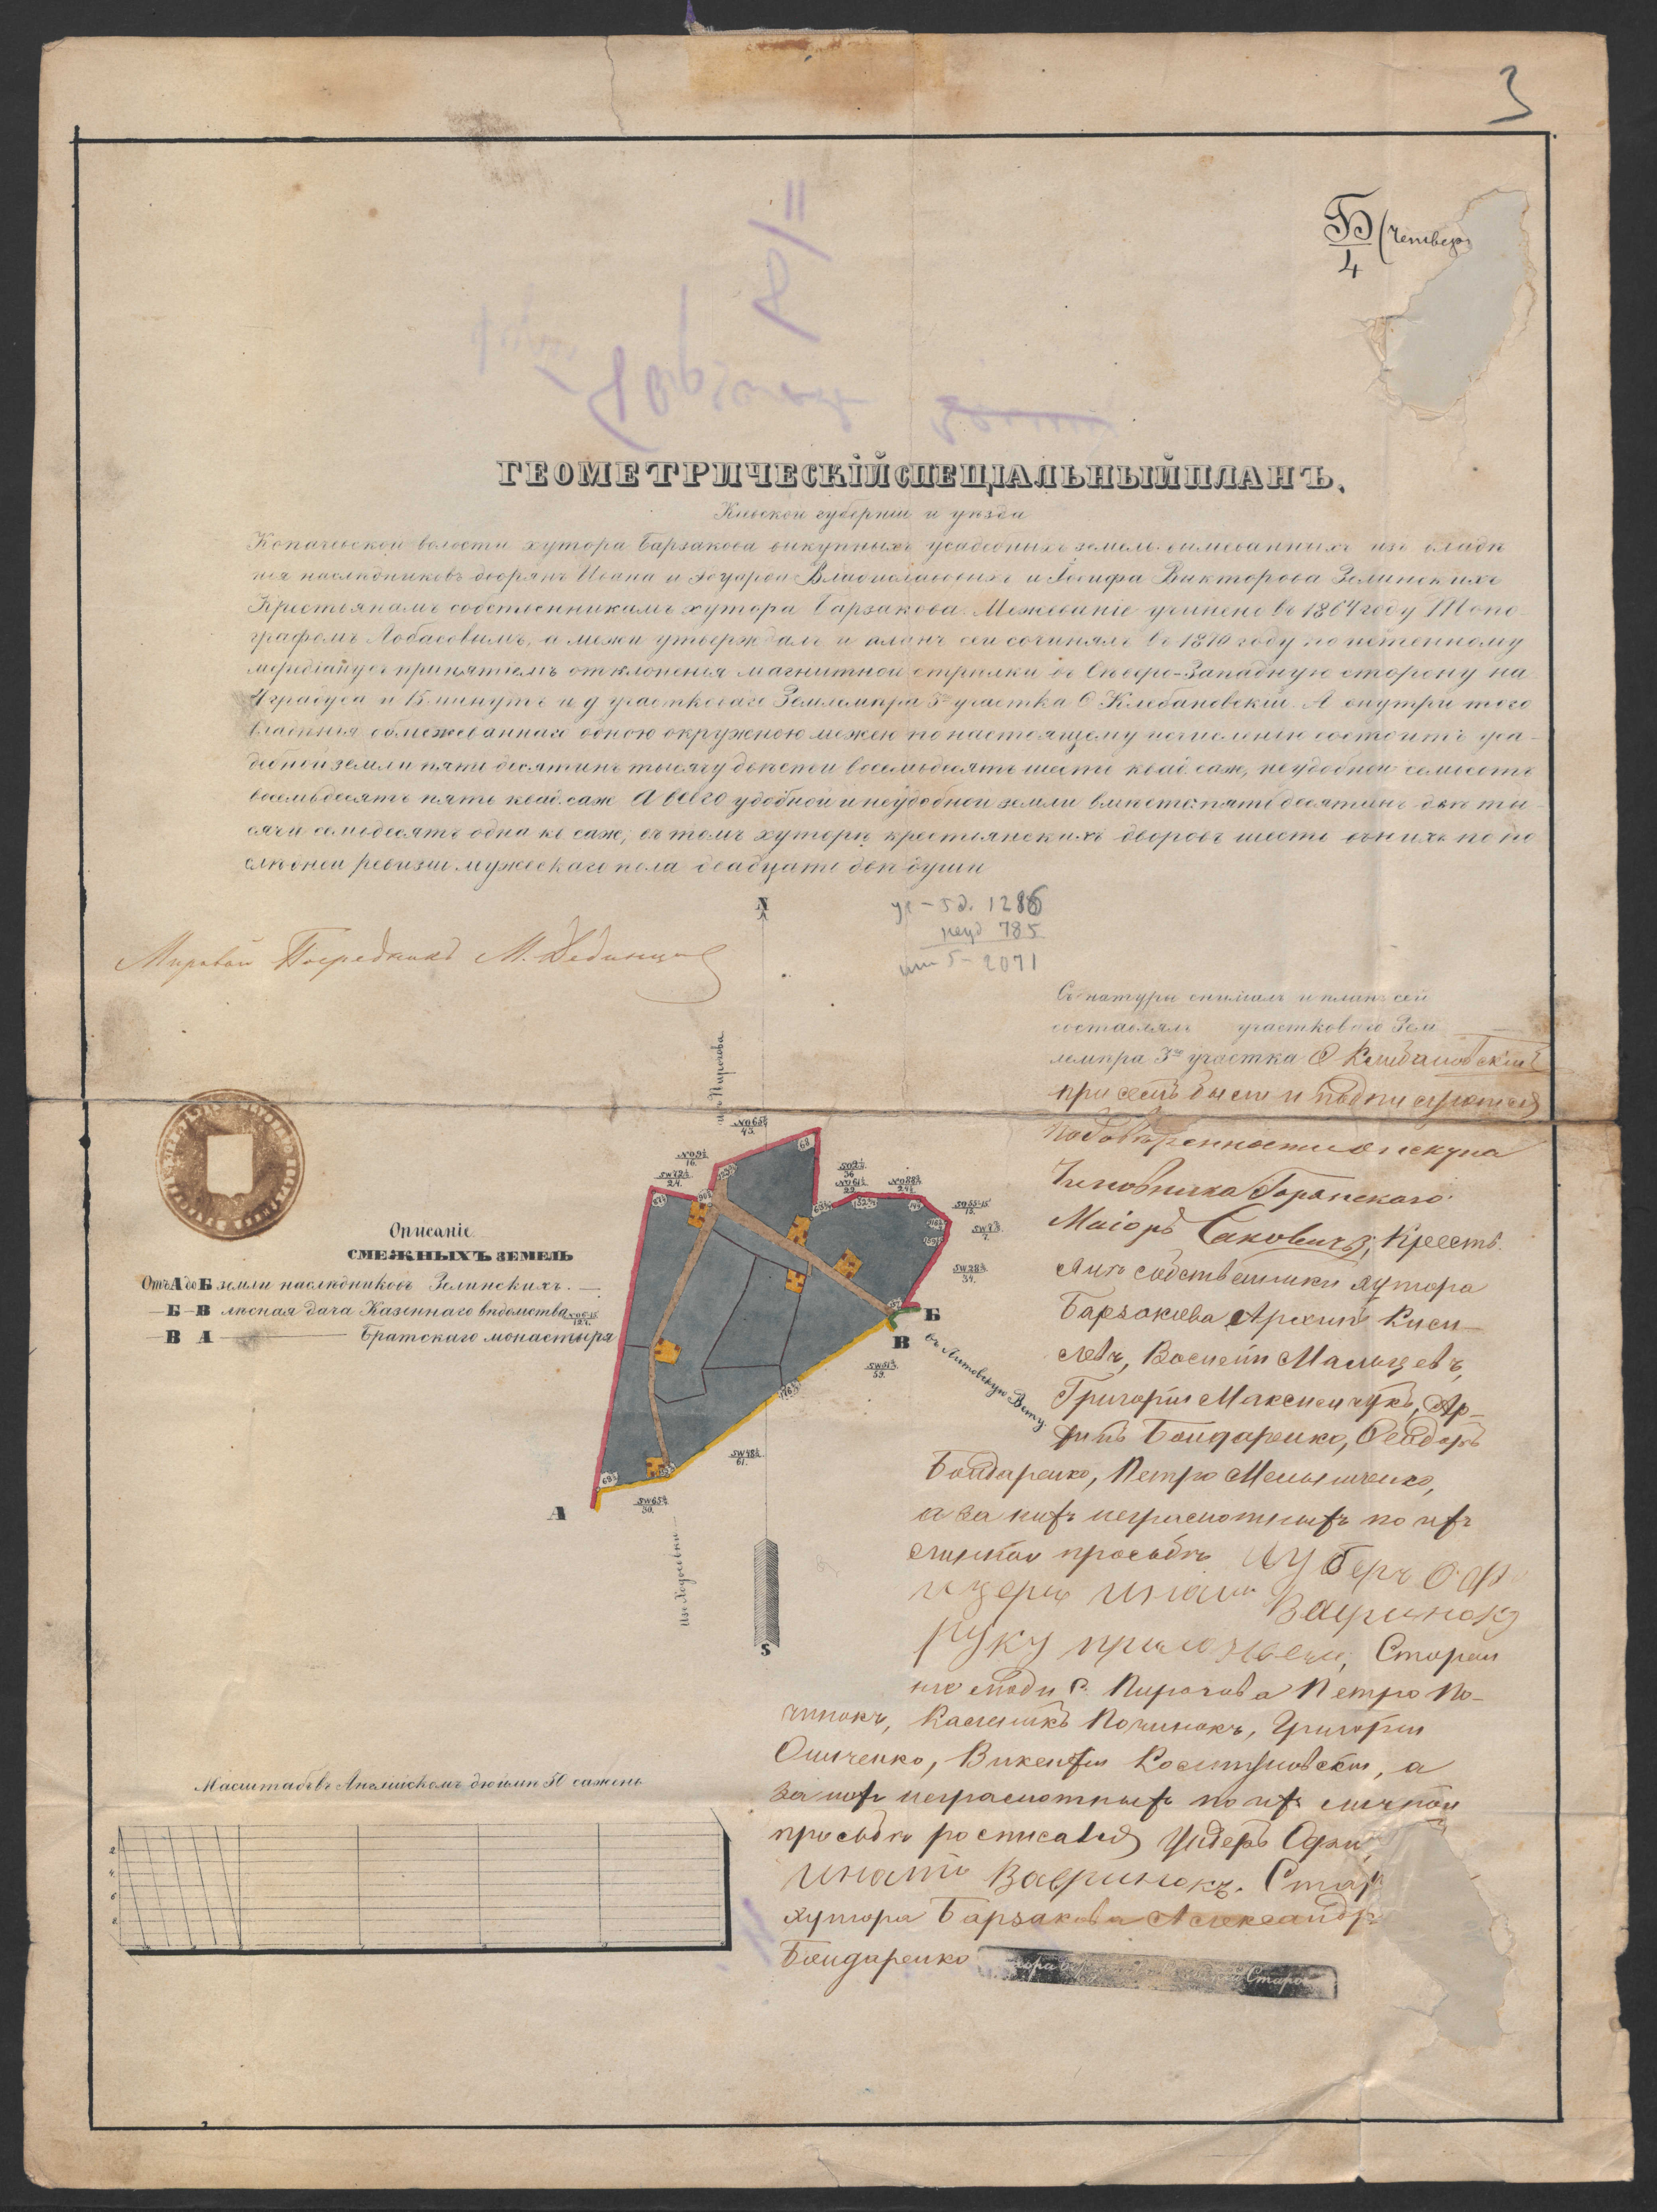 3
Б/4 (Четвер
ГЕОМЕТРИЧЕСКІЙ СПЕЦІАЛЬНЫЙ ПЛАНЪ.
Кіевской губерніи и уѣзда
Копачевской волости хутора Барзакова выкупныхъ усадебныхъ земель вымеванныхъ изъ владѣ
нія наслѣдниковъ дворянъ Ивана и Эдуарда Владиславовыхъ и Іосифа Викторова Зелинскихъ
Крестьянамъ собственникамъ хутора Барзакова. Межеваніе учинено въ 1864 году Топо-
графомъ Лобасовымъ, а межи утверждалъ и планъ сей сочинялъ въ 1870 году по истенному
меридіану съ принятіемъ отклоненія магнитной стрѣлки въ Сѣверо-Западную сторону на
4 градуса и 15 минутъ и д участковаго Землемѣра 3го участка О Клебановскій. А внутри того
владѣнія обмежеванная одною окружною межею по настоящему исчисленію состоитъ уса-
дебной земли пять десятинъ тысячу двѣсти восемьдесятъ шесть квад. саж, неудобной семьсотъ
восемьдесятъ пять квад. саж А всего удобной и неудобной земли вмѣсте: пять десятинъ двѣ ты-
сячи семьдесятъ одна кв саж, въ томъ хуторѣ крестьянскихъ дворовъ шесть въ нихъ по по
слѣдней ревизіи мужескаго пола двадцать двѣ души
N
ус - 5 д. 1286
неуд 785
5 - 2071
Мировой Посредникъ М.
Съ натуры снималъ и планъ сей
составлялъ участковаго Зем
лемѣра 3го участка О Клебановскій
при семъ были и подписуются
По довѣренности опекуна
Чиновника Горанскаго
Маіоръ Саковичъ, Кресть
яне собственники хутора
Барзакова Архипъ Кисе-
левъ, Василій Мальцевъ,
Григорій Максимчукъ, Ар-
хипъ Бондаренко, Ѳеодоръ
Бондаренко, Петро
а за нихъ неграмотныхъ по ихъ
личной просьбѣ Унтеръ Оф
ицеръ Игнатъ Вавринокъ
руку приложилъ, Сторон
ніе люди с. Пирогова Петро По-
чинокъ, Калениκъ Починокъ, Григорій
Викентій а
за ихъ неграмотныхъ по ихъ личной
просьбѣ росписался Унтеръ Офи
Игнатъ Вавринокъ. Стар
хутора Барзакова Александръ
Бондаренко
Старос
изъ Пирогова
Описаніе
СМЕЖНЫХЪ ЗЕМЕЛЬ
Отъ А до Б земли наслѣдниковъ Зелинскихъ.
Б - В лѣсная дача Казеннаго вѣдомства
В А Братскаго монастыря
Б
В
въ Литовскую Вету.
А
изъ Ходосовки
S
Масштабъ въ Англійскомъ дюймѣ 50 сажень